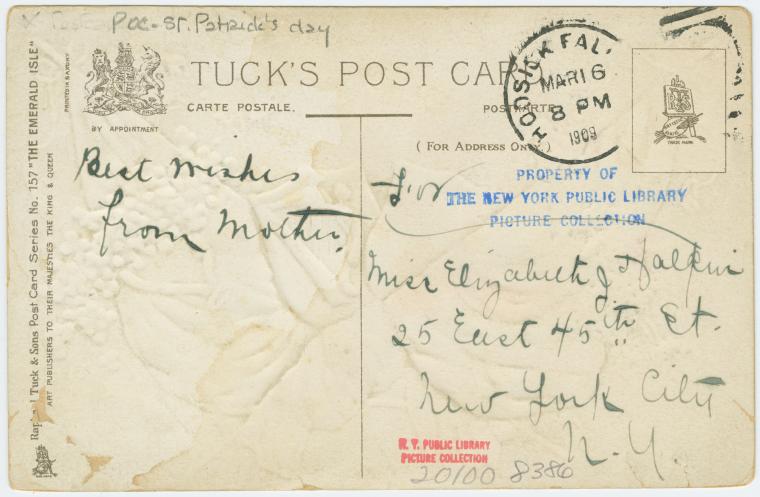 Poc - St. Patrick's day
TUCK'S POST CARD
CARTE POSTALE.
POSTKARTE
BY APPOINTMENT
(FOR ADDRESS ONLY.)
PRINTED IN SAXONY
Raphael Tuck & Sons Post Card Series No. 157 "THE EMERALD ISLE"
ART PUBLISHERS TO THEIR MAJESTIES THE KING & QUEEN
HOOSICK FALL
MAR 16
8 PM
1909
TRADE MARK
Best Wishes
from Mother.
For
PROPERTY OF
THE NEW YORK PUBLIC LIBRARY
PICTURE COLLECTION
Miss Elizabeth J Halpin
25 East 45th St.
New York City
N.Y.
N. Y. PUBLIC LIBRARY
PICTURE COLLECTION
20100 8386